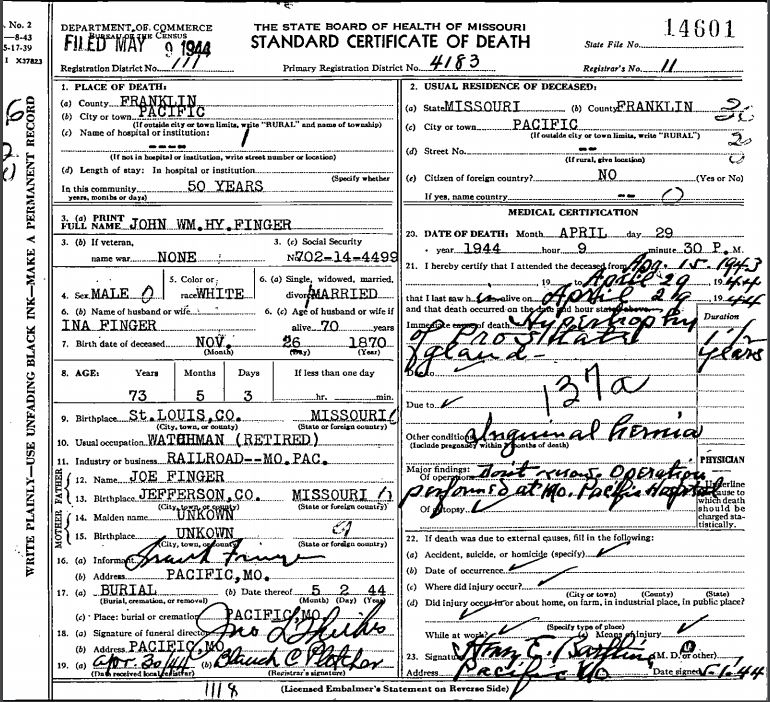 . No. 2
—8-43
5-17-39
I X37823
WRITE PLAINLY—USE UNFADING BLACK INK—MAKE A PERMANENT RECORD
DEPARTMENT OF COMMERCE
BUREAU OF THE CENSUS
FILED MAY 9 1944
THE STATE BOARD OF HEALTH OF MISSOURI
STANDARD CERTIFICATE OF DEATH
14601
State File No.
Registration District No. 111
Primary Registration District No. 4183
Registrar's No. 11
1. PLACE OF DEATH:
(a) County FRANKLIN
(b) City or town PACIFIC
(If outside city or town limits, write "RURAL" and name of township)
(c) Name of hospital or institution:
----
(If not in hospital or institution, write street number or location)
(d) Length of stay: In hospital or institution?
(Specify whether
In this community 50 YEARS
years, months or days)
3. (a) PRINT
FULL NAME JOHN WM.HY.FINGER
3. (b) If veteran,
name war NONE
3. (c) Social Security
No702-14-4499
4. Sex MALE
5. Color or
race WHITE
6. (a) Single, widowed, married,
divorced MARRIED
6. (b) Name of husband or wife
INA FINGER
6. (c) Age of husband or wife if
alive 70 years
7. Birth date of deceased NOV. 26 1870
(Month) (Day) (Year)
8. AGE: Years Months Days If less than one day
73 5 3 hr. min.
9. Birthplace St.LOUIS,CO. MISSOURI
(City, town, or county) (State or foreign country)
10. Usual occupation WATCHMAN (RETIRED)
11. Industry or business RAILROAD--MO.PAC.
FATHER
12. Name JOE FINGER
13. Birthplace JEFFERSON,CO. MISSOURI
(City, town, or county) (State or foreign country)
MOTHER
14. Maiden name UNKOWN
15. Birthplace UNKOWN
(City, town, or county) (State or foreign country)
16. (a) Informant
(b) Address PACIFIC,MO.
17. (a) BURIAL (b) Date thereof 5 2 44
(Burial, cremation, or removal) (Month) (Day) (Year)
(c) Place: burial or cremation PACIFIC,MO
18. (a) Signature of funeral director
(b) Address PACIFIC,MO
19. (a) Apr. 30/44 (b)
(Date received local registrar) (Registrar's signature)
2. USUAL RESIDENCE OF DECEASED:
(a) State MISSOURI (b) County FRANKLIN
(c) City or town PACIFIC
(If outside city or town limits, write "RURAL")
(d) Street No. --
(If rural, give location)
(e) Citizen of foreign country? NO (Yes or No)
If yes, name country --
MEDICAL CERTIFICATION
20. DATE OF DEATH: Month APRIL day 29
year 1944 hour 9 minute 30 P. M.
21. I hereby certify that I attended the deceased from Aug. 15. 1943
19 to April 29 1944
that I last saw him alive on April 29 1944
and that death occurred on the date and hour stated above.
Duration
Immediate cause of death Hypertrophy
of Prostate
gland-
years
Due to
137a
Due to
Other conditions Inguinal hernia
(Include pregnancy within 3 months of death)
PHYSICIAN
Major findings:
Of operations Don't know. Operation
performed at Mo. Pacific Hospital
Of autopsy
Underline
the cause to
which death
should be
charged sta-
tistically.
22. If death was due to external causes, fill in the following:
(a) Accident, suicide, or homicide (specify)
(b) Date of occurrence
(c) Where did injury occur?
(City or town) (County) (State)
(d) Did injury occur in or about home, on farm, in industrial place, in public place?
(Specify type of place)
While at work? (e) Means of injury
23. Signature (M. D. or other)
Address Pacific Mo Date signed 5-1-44
1118
(Licensed Embalmer's Statement on Reverse Side)